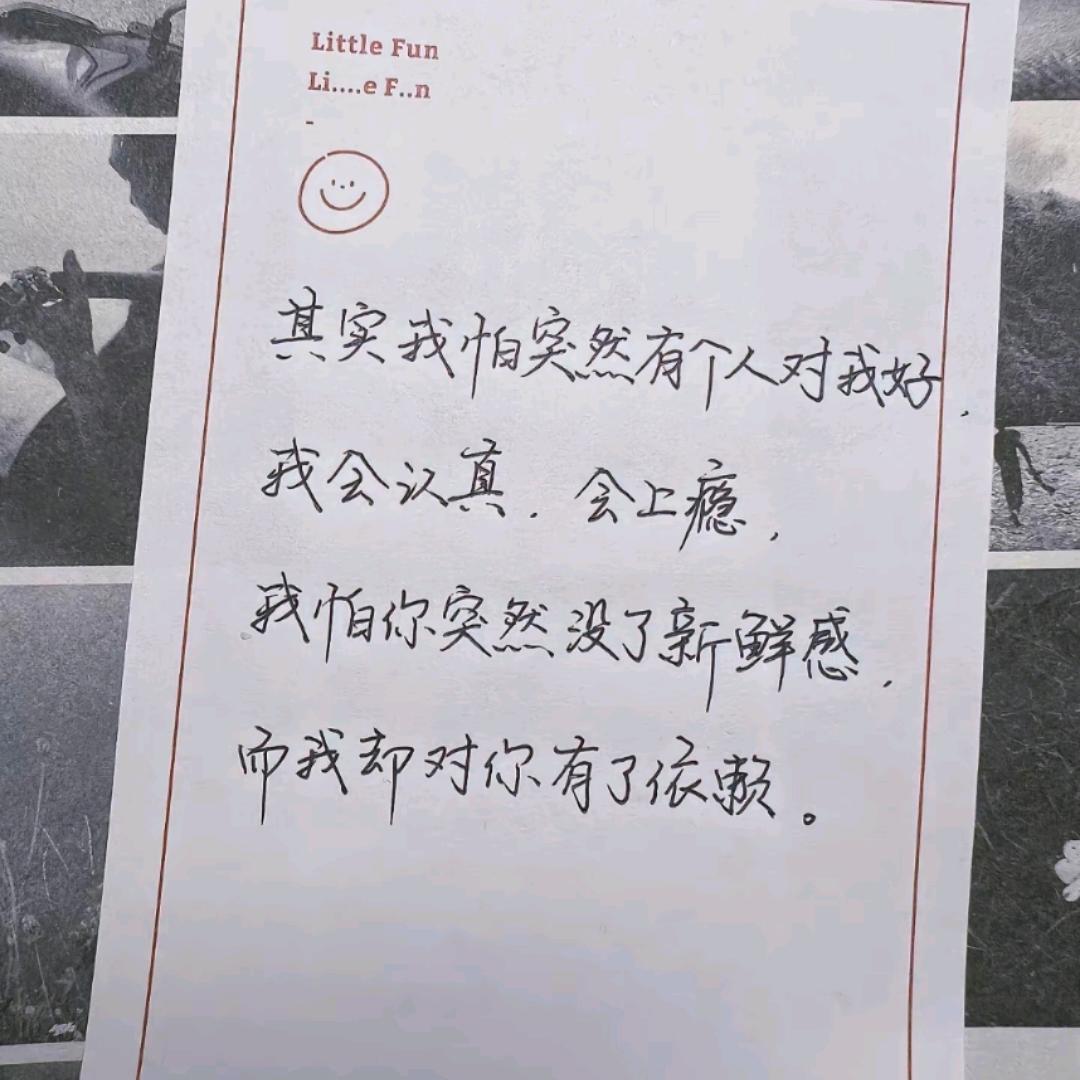 Little Fun
Li....e F..n
-
其实我怕突然有个人对我好,
我会认真. 会上瘾,
我怕你突然没了新鲜感,
而我却对你有了依赖。